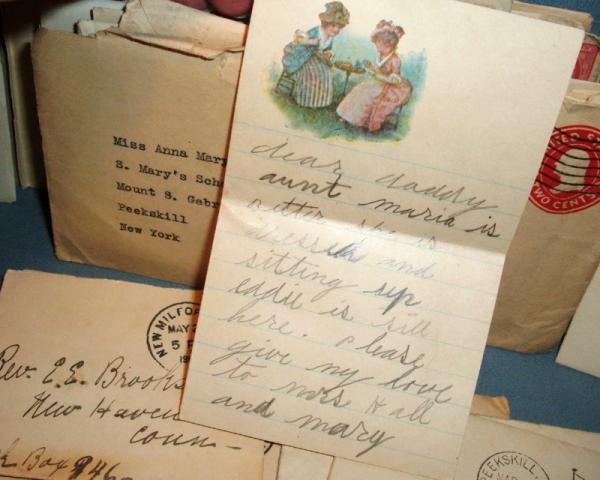 Miss Anna Mary
S. Mary's Scho
Mount S. Gabr
Peekskill
New York
dear daddy
aunt maria is
better she is
dressed and
sitting up
eddie is still
here. please
give my love
to mrs Hall
and mary
TWO CENTS
NEW MILFO
MAY
5 P
Rev. E. E. Brooks
New Haven
Conn-
Box 846
PEEKSKILL,